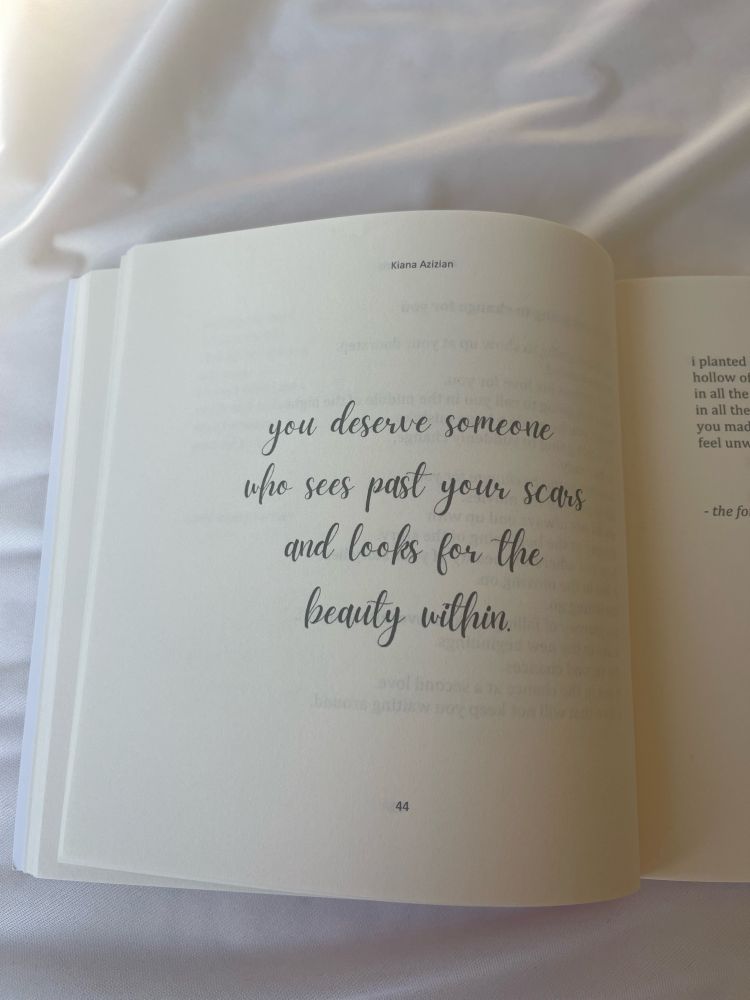 Kiana Azizian
you deserve someone
who sees past your scars
and looks for the
beauty within.
44
i planted
hollow of
in all the
in all the
you mad
feel unw
- the fo